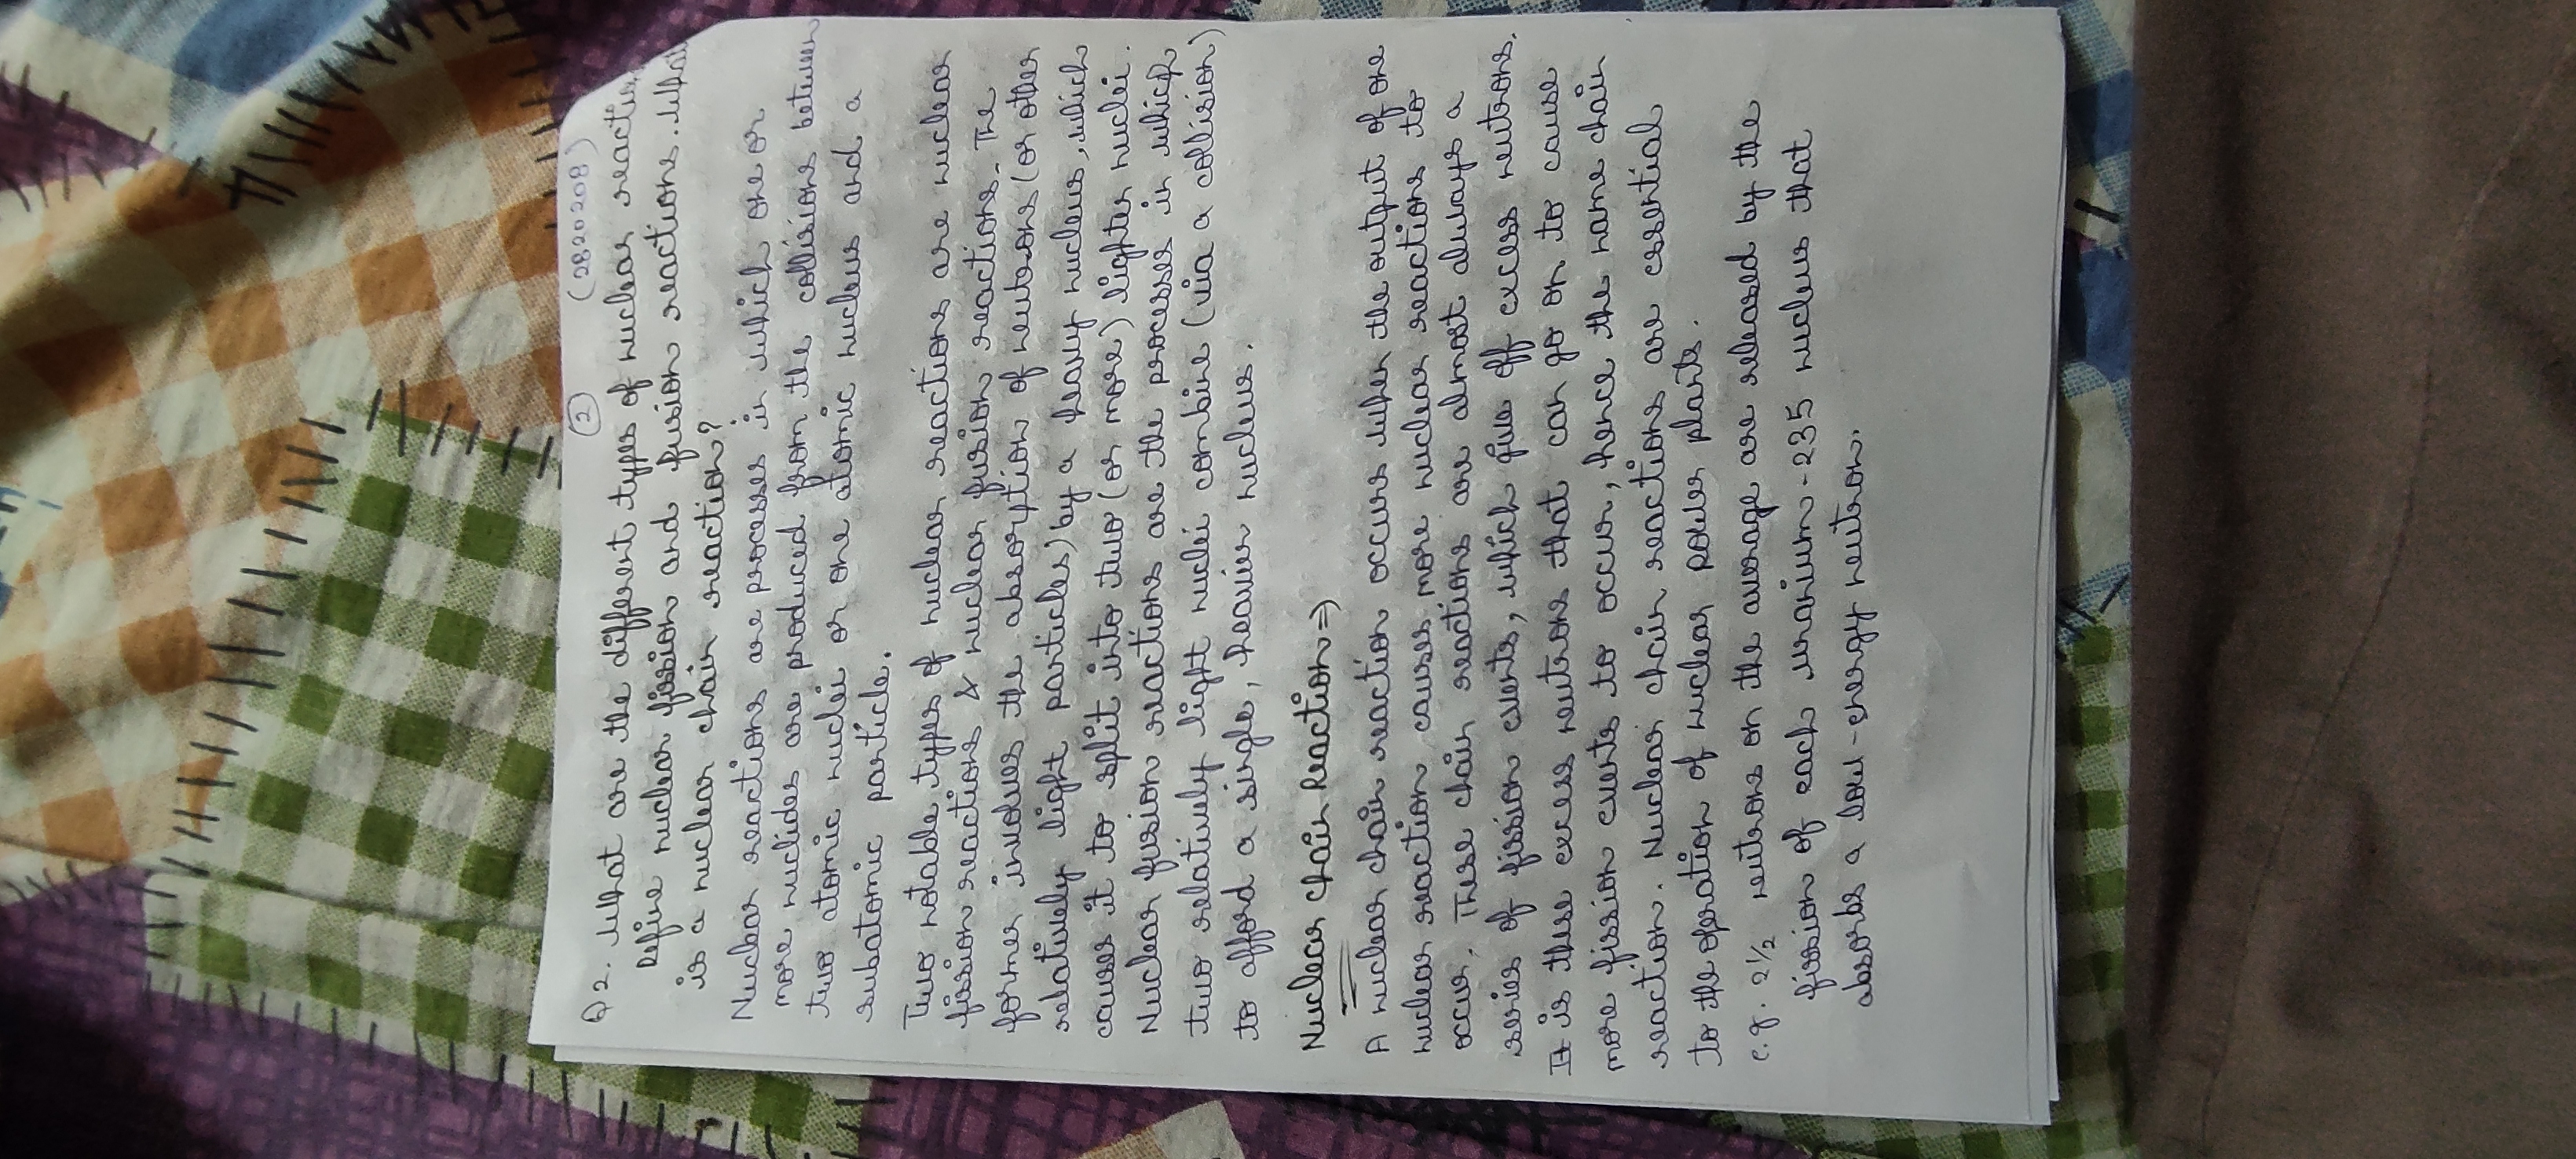 2 (2820208)
Q2. What are the different types of nuclear reactio
Define nuclear fission and fusion reactions. What
is a nuclear chain reaction?
Nuclear reactions are processes in which one or
more nuclides are produced from the collisions between
two atomic nuclei or one atomic nucleus and a
subatomic particle.
Two notable types of nuclear reactions are nuclear
fission reactions & nuclear fusion reactions. The
former involves the absorption of neutrons (or other
relatively light particles) by a heavy nucleus, which
causes it to split into two (or more) lighter nuclei.
Nuclear fusion reactions are the processes in which
two relatively light nuclei combine (via a collision)
to afford a single, heavier nucleus.
Nuclear Chain Reaction ⇒
A nuclear chain reaction occurs when the output of one
nuclear reaction causes more nuclear reactions to
occur. These chain reactions are almost always a
series of fission events, which give off excess neutrons.
It is these excess neutrons that can go on to cause
more fission events to occur, hence the name chain
reaction. Nuclear chain reactions are essential
to the operation of nuclear power plants.
e.g. 2½ neutrons on the average are released by the
fission of each uranium-235 nucleus that
absorbs a low-energy neutron.